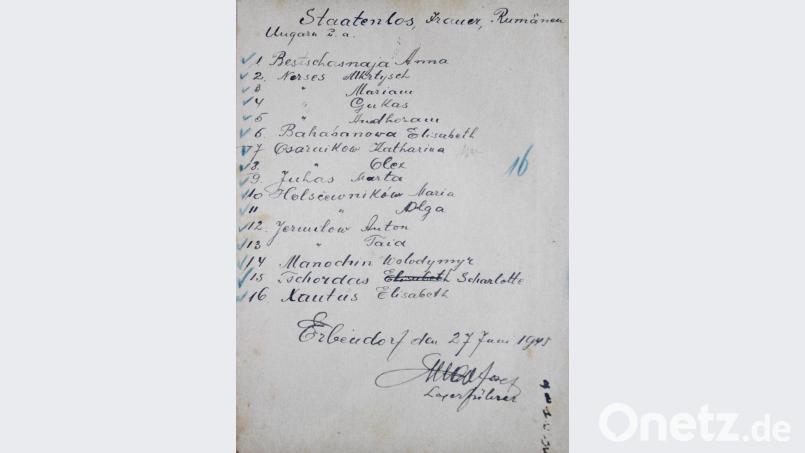 Staatenlos, Iraner, Rumänen
Ungarn u. a.
1 Bestschasnaja Anna
2. Nerses Mkrtysch
3 " Mariam
4 " Gukas
5 "
6. Bahabanowa Elisabeth
7 Osarnikow Katharina
8. " Olex
9. Juhas Marta
10 Holsčewników Maria
11 " Olga
12. Jermilow Anton
13 " Taia
14 Manochin Wolodymyr
15 Tschordas Elisabeth Scharlotte
16. Xautus Elisabeth
16
Erbendorf den 27 Juni 1945
Josef
Lagerführer
Onetz.de